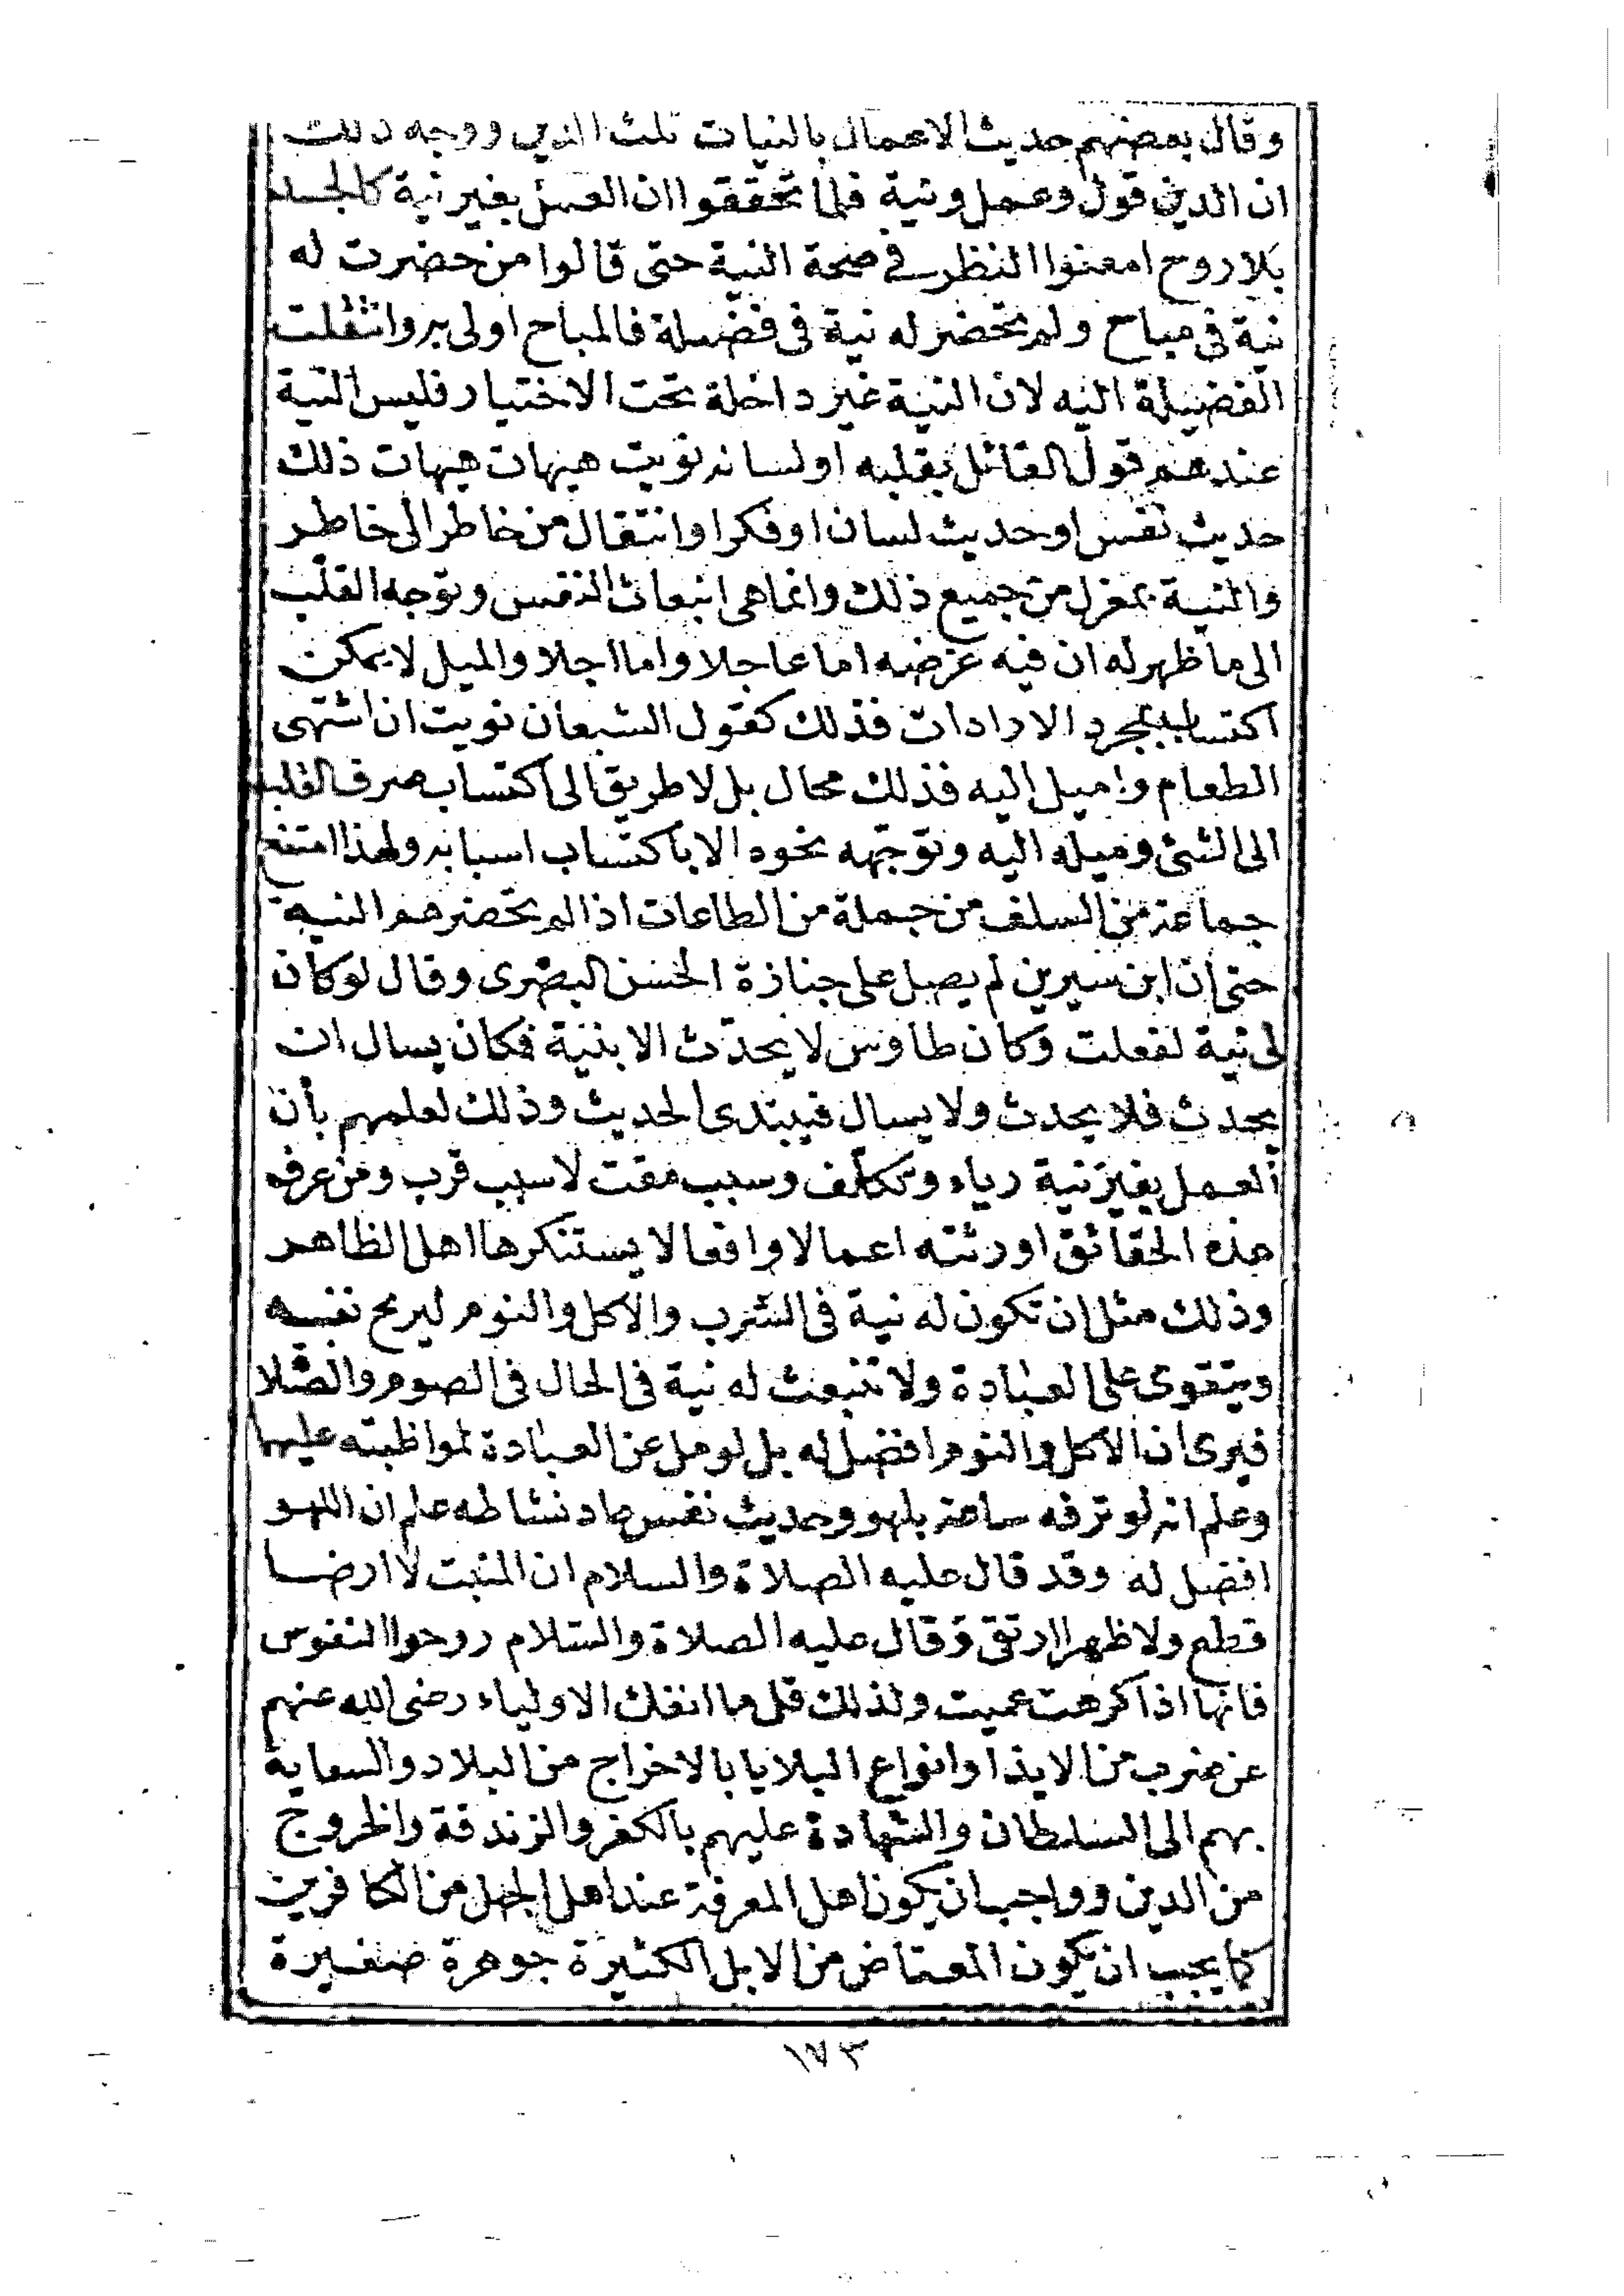 وقال بعضهم حديث الاعمال بالنيات ثلث الدين ووجه ذلك
ان الدين قول وعمل ونية فلما تحققوا ان العمل بغير نية كالجسد
بلا روح امعنوا النظر في صحة النية حتى قالوا من حضرت له
نية في مباح ولم تحضر له نية في فضيلة فالمباح اولى به وانتقلت
الفضيلة اليه لان النية غير داخلة تحت الاختيار فليس النية
عندهم قول القائل بقلبه او لسانه نويت هيهات هيهات ذلك
حديث نفس او حديث لسان او فكر او انتقال من خاطر الى خاطر
والنية بمعزل من جميع ذلك وانما هي انبعاث النفس وتوجه القلب
الى ما ظهر له ان فيه غرضه اما عاجلا واما اجلا والميل لا يمكن
اكتسابه بمجرد الارادات فذلك كقول الشبعان نويت ان اشتهى
الطعام واميل اليه فذلك محال بل لا طريق الى اكتساب صرف القلب
الى الشئ وميله اليه وتوجهه نحوه الا باكتساب اسبابه ولهذا امتنع
جماعة من السلف من جملة من الطاعات اذا لم تحضرهم النية
حتى ان ابن سيرين لم يصل على جنازة الحسن البصرى وقال لو كان
لى نية لفعلت وكان طاوس لا يحدث الا بنية فكان يسال ان
يحدث فلا يحدث ولا يسال فيبتدى الحديث وذلك لعلمهم بأن
العمل بغير نية رياء وتكلف وسبب مقت لا سبب قرب ومن عرف
هذه الحقائق اورثته اعمالا وافعالا يستنكرها اهل الظاهر
وذلك مثل ان تكون له نية في الشرب والاكل والنوم ليريح نفسه
ويتقوى على العبادة ولا تنبعث له نية في الحال في الصوم والصلاة
فيرى ان الاكل والنوم افضل له بل لو مل عن العبادة لمواظبته عليها
وعلم انه لو ترفه ساعة بلهو وحديث نفس عاد نشاطه علم ان اللهو
افضل له وقد قال عليه الصلاة والسلام ان المنبت لا ارضا
قطع ولا ظهرا ارتقى وقال عليه الصلاة والسلام روحوا النفوس
فانها اذا كرهت عميت ولذلك قل ما انفك الاولياء رضى الله عنهم
عن ضرب من الايذا وانواع البلايا بالاخراج من البلاد والسعاية
بهم الى السلطان والشهادة عليهم بالكفر والزندقة والخروج
من الدين وواجب ان يكون اهل المعرفة عند اهل الجهل من الكافرين
كما يجب ان يكون المعتاض من الابل الكثيرة جوهرة صغيرة
١٧٣